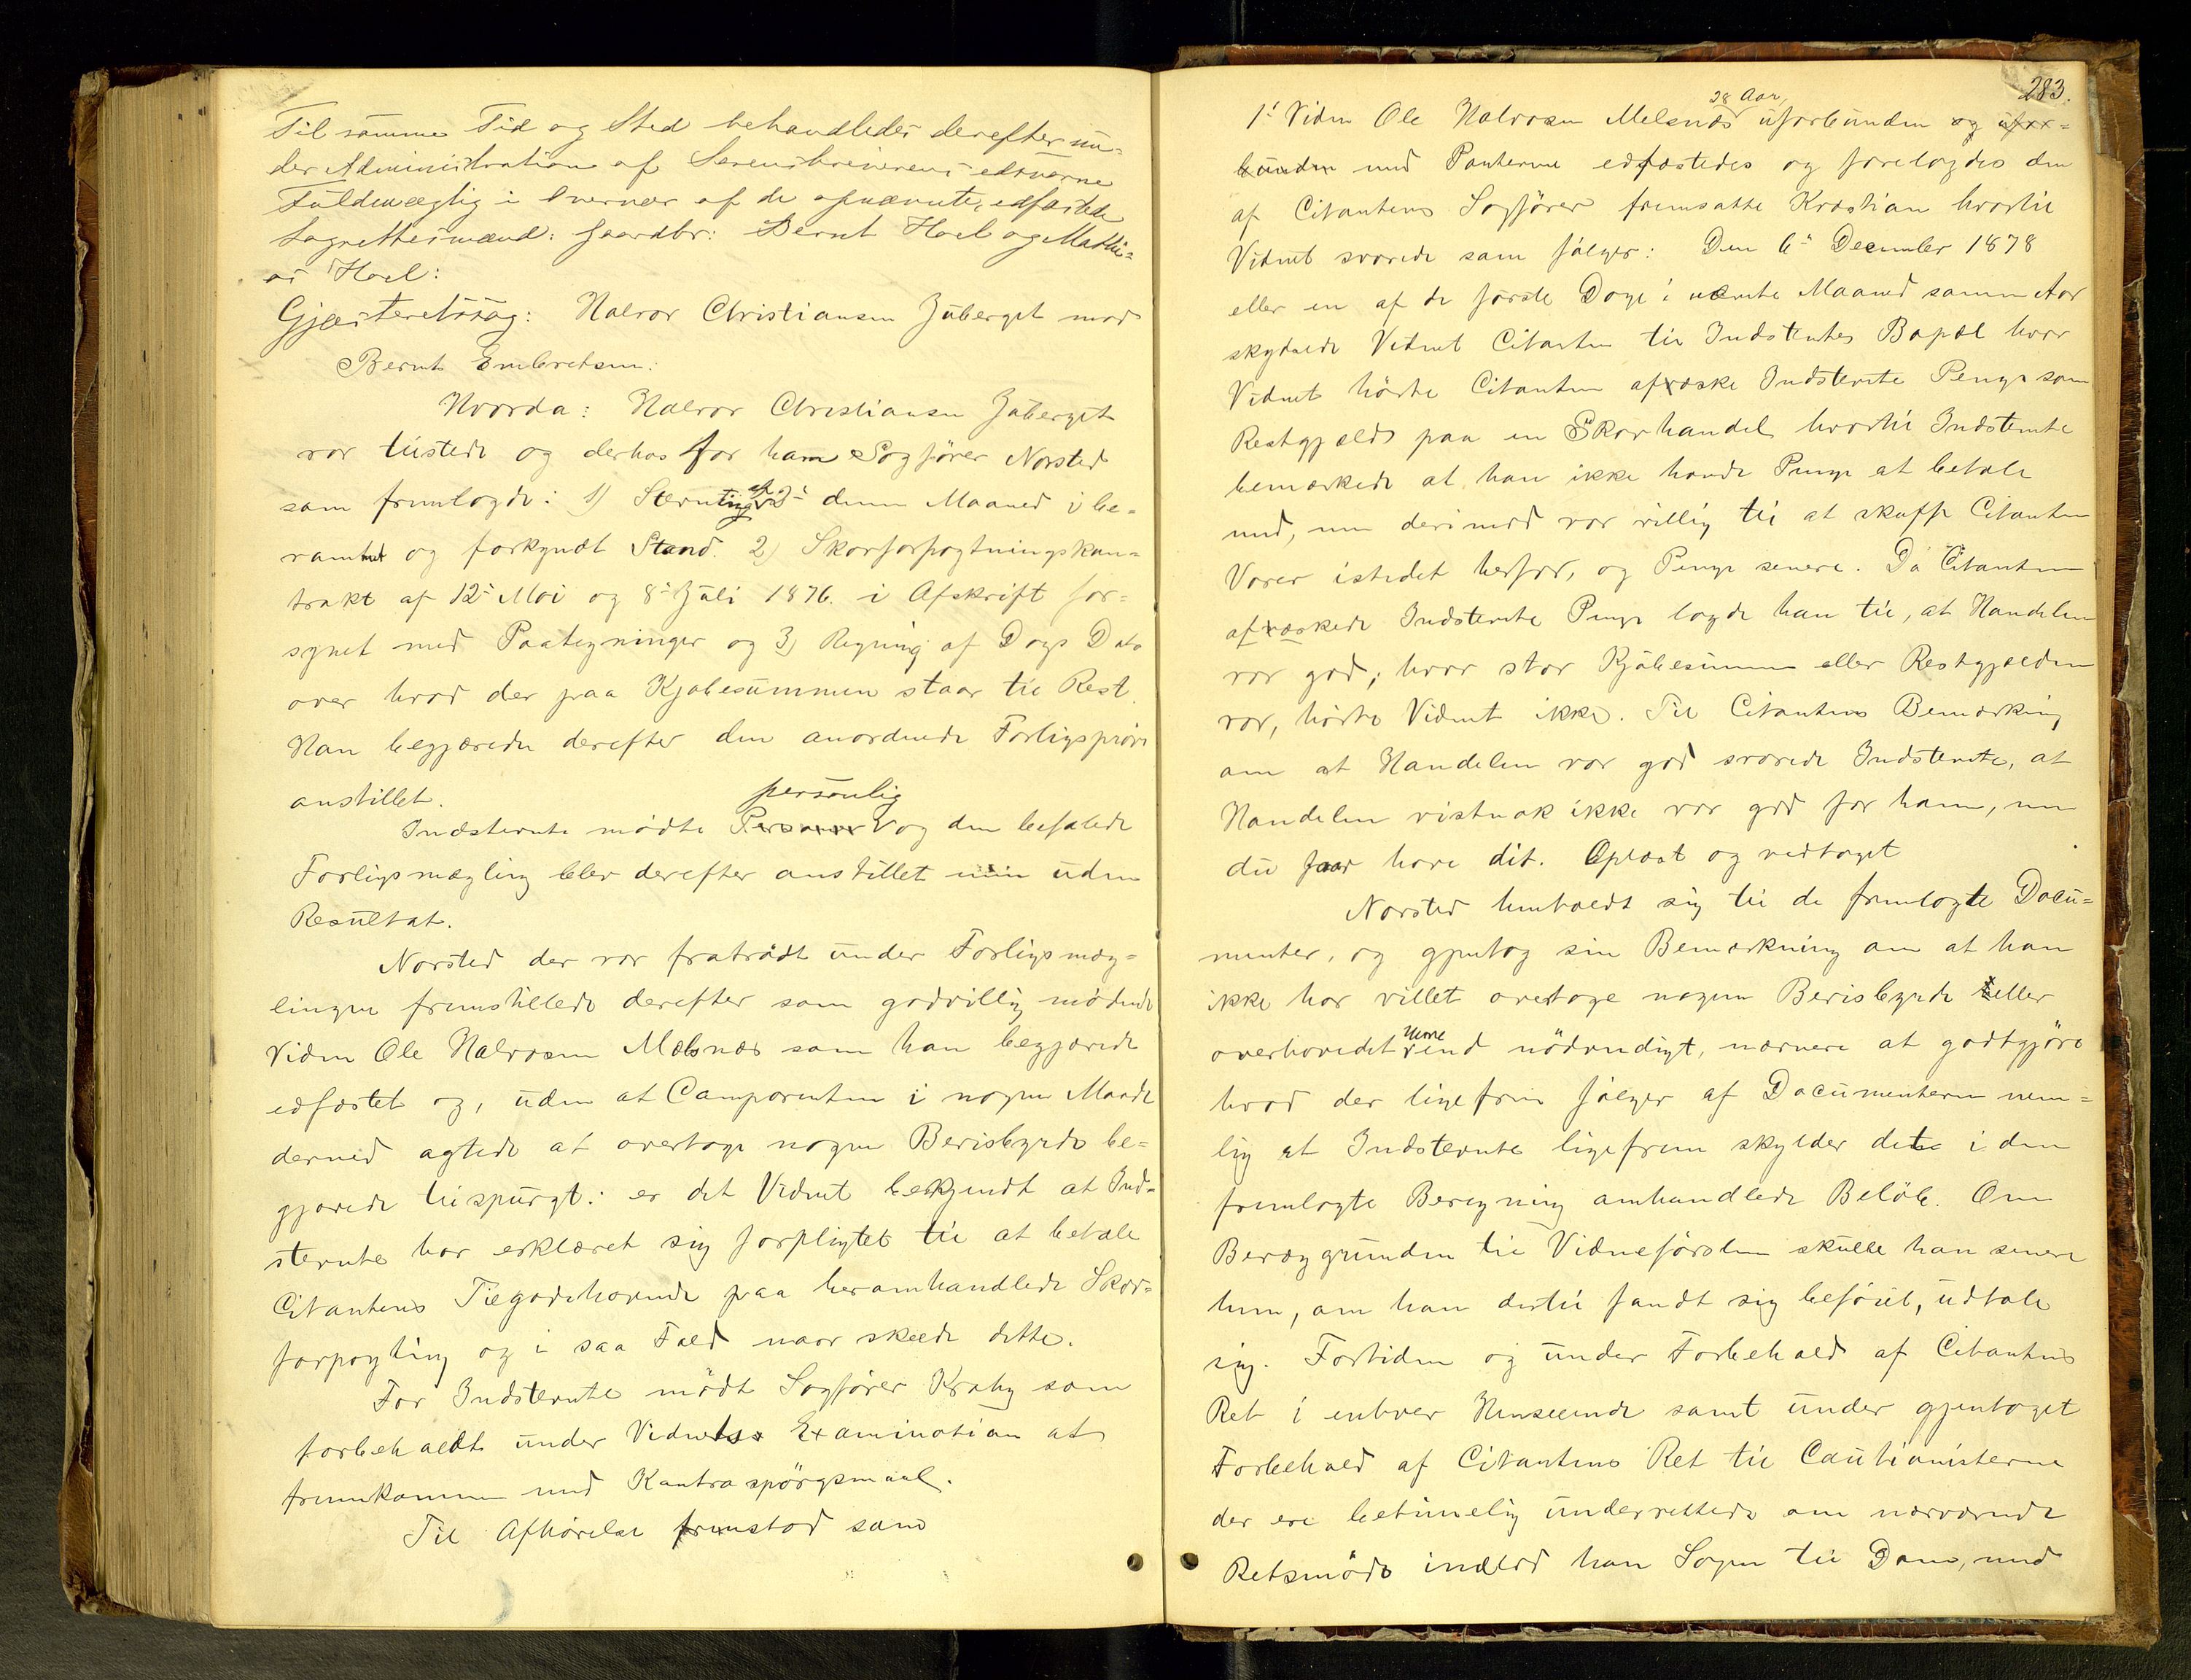 Til samme Tid og Sted behandledes derefter un-
der Administration af Sorenskriverens edsvorne
Fuldmægtig i Overvær af de opnævnte, edfæstede
Lagrettesmænd: Gaardbr: Bernt Hoel og Mathi-
as Hoel:
Gjæsteretssag: Halvor Christiansen Juberget mod
Bernt Embretsen.
Hvorda: Halvor Christiansen Juberget
var tilstede og derhos for ham Sagfører Norsted
som fremlagde: 1) Stevning af 3' denne Maaned i be-
rammet og forkyndt Stand. 2) Skovforpagtningskon-
trakt af 12' Mai og 8' Juli 1876 i Afskrift for-
synet med Paategninger og 3) Regning af Dags Dato
over hvad der paa Kjøbesummen staar til Rest.
Han begjærede derefter den anordnede Forligsprøve
anstillet.
Indstevnte mødte personlig og den befalede
Forligsmægling blev derefter anstillet men uden
Resultat.
Norsted der var fratraadt under Forligsmæg-
lingen fremstillede derefter som godvillig mødende
Vidne Ole Halvorsen Melsnæs som han begjærede
edfæstet og, uden at Comparenten i nogen Maade
derved agtede at overtage nogen Bevisbyrde be-
gjærede tilspurgt: er det Vidnet bekjendt at Ind-
stevnte har erklæret sig forpligtet til at betale
Citantens Tilgodehavende paa heromhandlede Skov-
forpagtning og i saa Fald naar skede dette.
For Indstevnte mødte Sagfører Kraby som
forbeholdt under Vidnets Examination at
fremkomme med Kontraspørgsmaal.
Til Afhørelse fremstod som
283.
28 Aar
1' Vidne Ole Halvorsen Melsnæs uforbunden og ufor-
bunden med Parterne edfæstedes og forelagdes den
af Citantens Sagfører fremsatte Kvæstion hvortil
Vidnet svarede som følger: Den 6' December 1878
eller en af de første Dage i nævnte Maaned samme Aar
skydsede Vidnet Citanten til Indstevntes Bopæl hvor
Vidnet hørte Citanten afæske Indstevnte Penge som
Restgjæld paa en Skovhandel hvortil Indstevnte
bemærkede at han ikke havde Penge at betale
med, men derimod var villig til at skaffe Citanten
Varer istedet herfor, og Penge senere. Da Citanten
afæskede Indstevnte Penge lagde han til, at Handelen
var god; hvor stor Kjøbesummen eller Restgjælden
var, hørte Vidnet ikke. Til Citantens Bemærkning
om at Handelen var god svarede Indstevnte, at
Handelen vistnok ikke var god for ham, men
du faar have dit. Oplæst og vedtaget
Norsted henholdt sig til de fremlagte Docu-
menter, og gjentog sin Bemærkning om at han
ikke har villet overtage nogen Bevisbyrde eller
overhovedet nødvendigt, nærmere at godtgjøre
hvad der ligefrem følger af Documenterne nem-
lig at Indstevnte ligefrem skylder dette i den
fremlagte Beregning omhandlede Beløb. Om
Bevæggrunden til Vidneførslen skulle han senere
hen, om han dertil fandt sig beføiet, udtale
sig. Fortiden og under Forbehold af Citantens
Ret i enhver Henseende samt under gjentaget
Forbehold af Citantens Ret til Cautionisterne
der ere betimelig underrettede om nærværende
Retsmøde indlod han Sagen til Dom, med